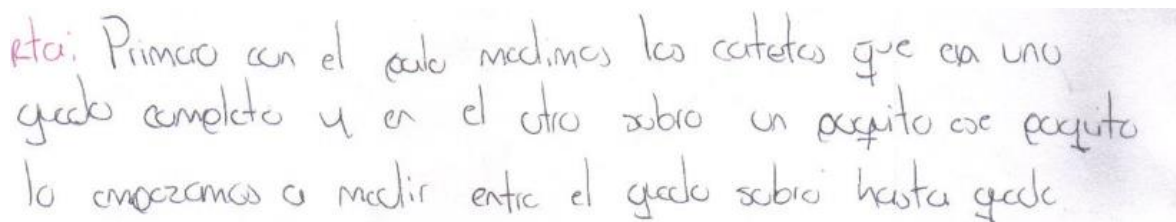 Rta: Primero con el palo medimos los catetos que en uno
quedo completo y en el otro sobro un poquito ese poquito
lo empezamos a medir entre el quedo sobro hasta quedo